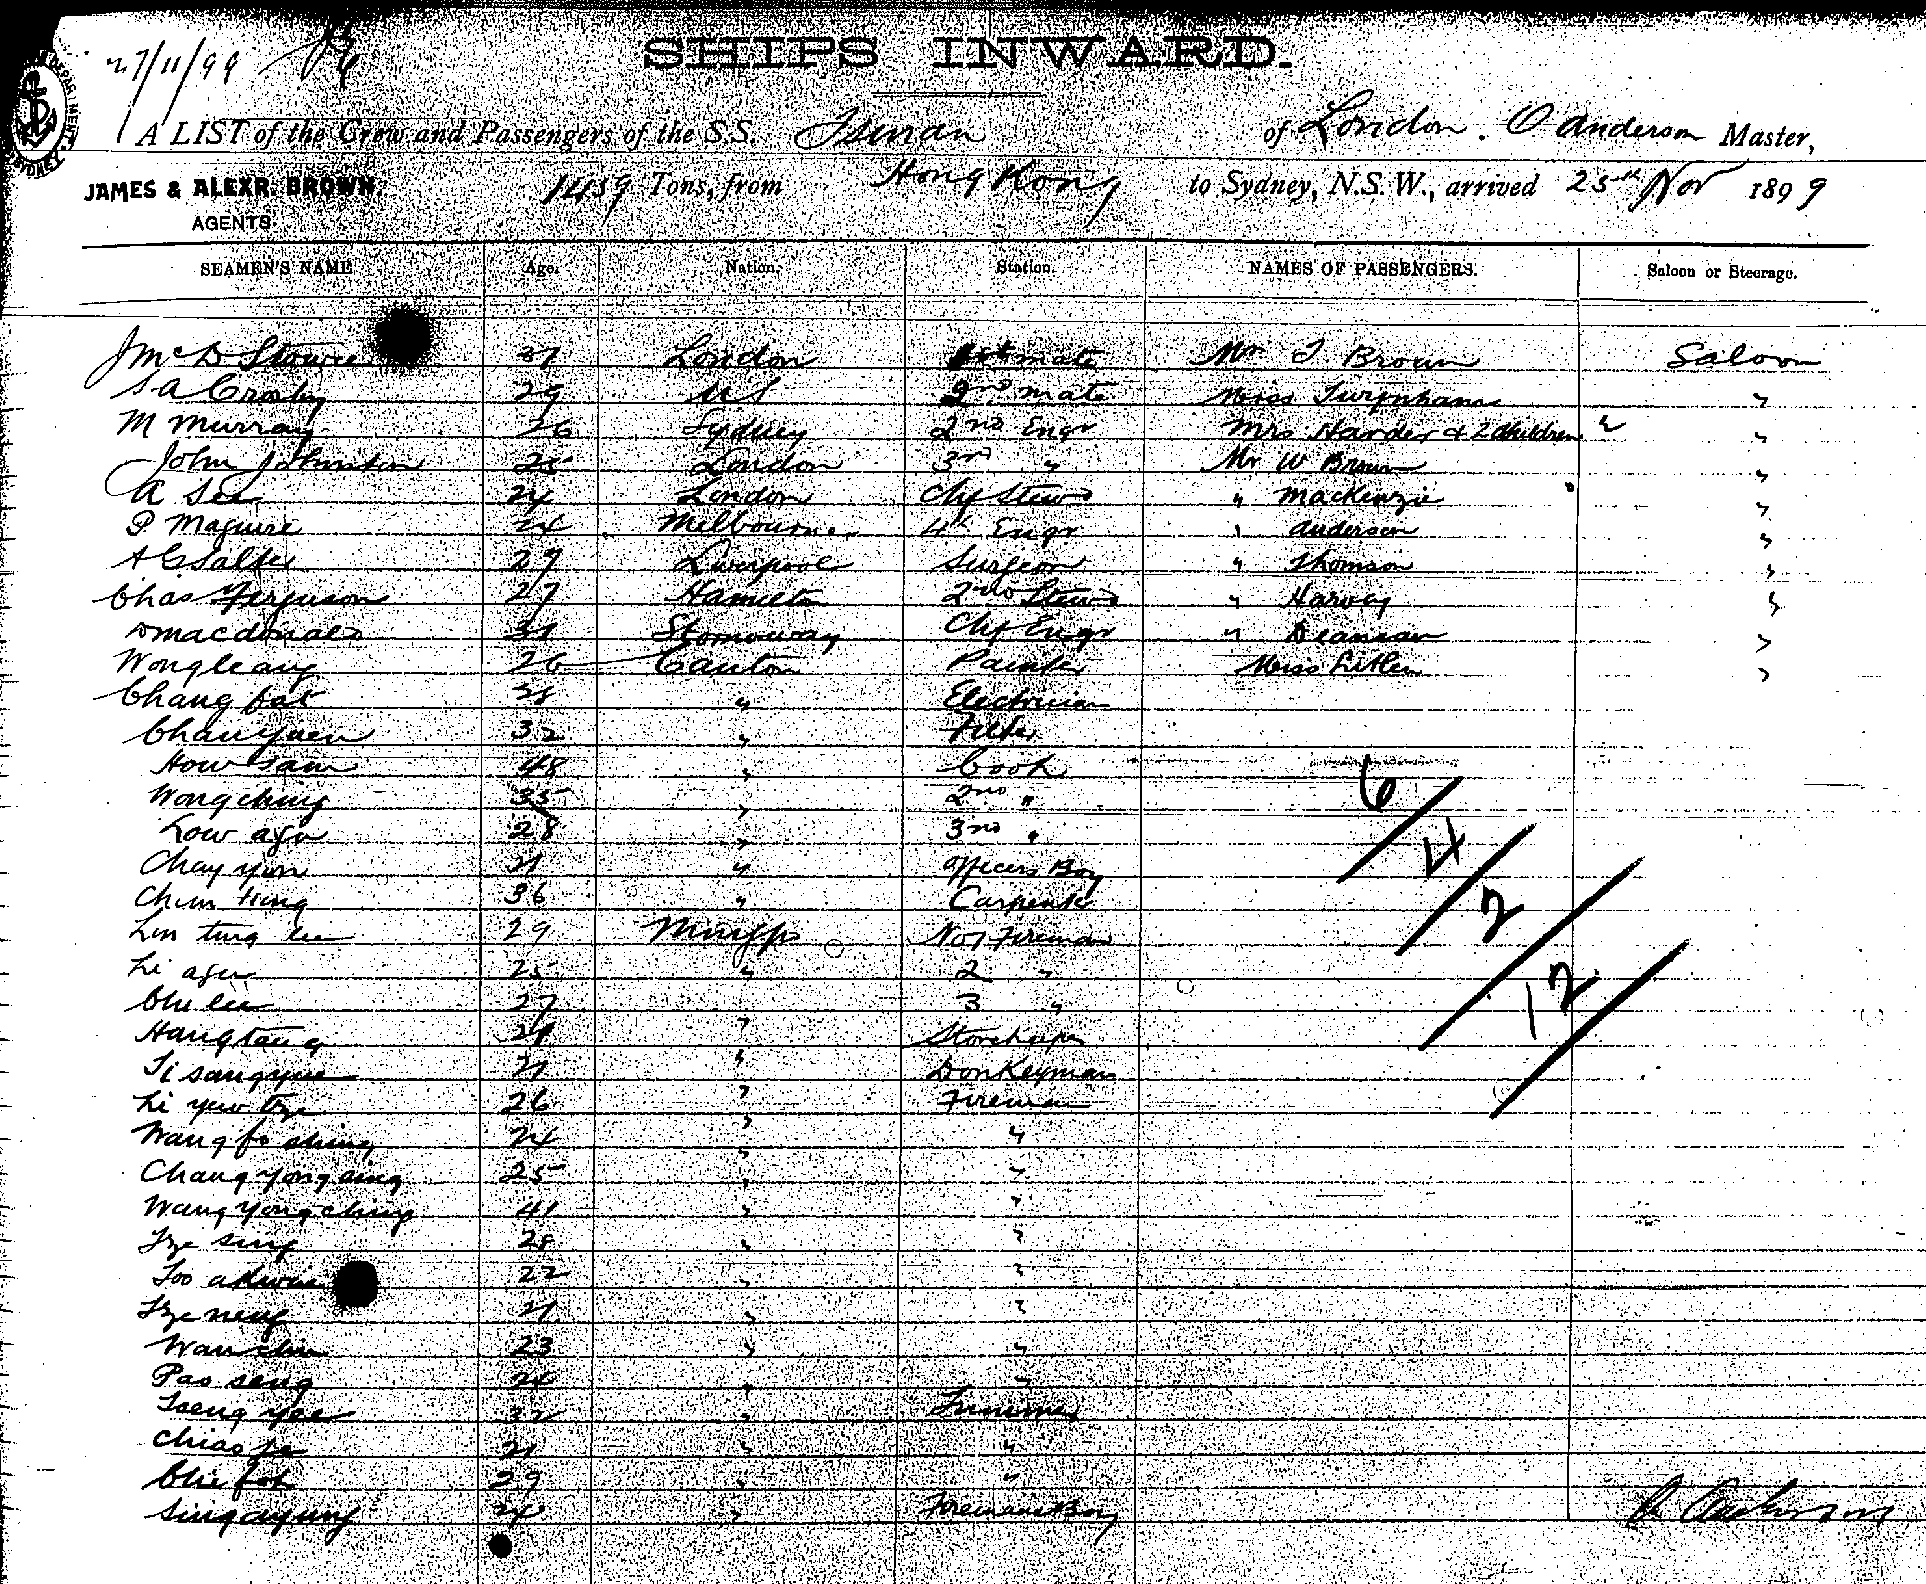 27/11/99
SHIPS INWARD.
A LIST of the Crew and Passengers of the S.S. Tsinan of London. O Anderson Master,
JAMES & ALEXR. BROWN, 1459 Tons, from Hong Kong to Sydney, N.S.W., arrived 25th Nov 1899
AGENTS.
SEAMEN'S NAME Age. Nation. Station. NAMES OF PASSENGERS. Saloon or Steerage.
J McD 37 London 1st mate Mr J Brown Saloon
S A Crosby 29 US 2nd mate Miss Twynham "
M Murray 26 Sydney 2nd Engr Mrs Harder & 2 children "
John Johnston 25 London 3rd " Mr W Brown "
A See 24 London Chf Stewd " Mackenzie "
P Maguire 24 Melbourne 4th Engr " Anderson "
A G Salter 29 Liverpool Surgeon " Thomson "
Chas Ferguson 27 Hamilton 2nd Stewd " Harvey "
D Macdonald 31 Stornoway Chf Engr " "
Wong leang 26 Canton Painter Miss "
Chang fat 28 " Electrician
Chan yuen 32 " Fitter
How sam 48 " Cook
Wong ching 35 " 2nd "
Low 28 " 3rd "
Chay yon 21 " Officers Boy
Chun 36 " Carpenter
Lin ting 29 Ningpo No 1 Fireman
Li 25 " 2 "
27 " 3 "
Hang tang 29 " Storekeeper
21 " Donkeyman
Li yew 26 " Fireman
Wang fo ching 24 " "
Chang yong 25 " "
Wang yong ching 41 " "
Tze sing 28 " "
Too 22 " "
Tze neng 21 " "
Wan chin 23 " "
Pao seng 24 " "
Tseng yee 32 " Trimmer
Chiao 21 " "
29 " "
24 " Firemans Boy
6/4/2/12
O Anderson